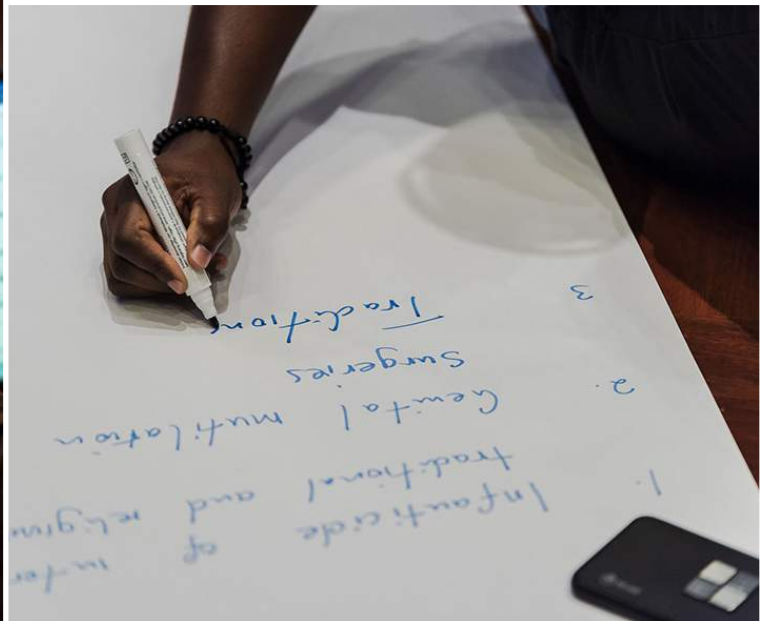 1. Infanticide of inter
traditional and
2. Genital mutilation
Surgeries
3 Tradition